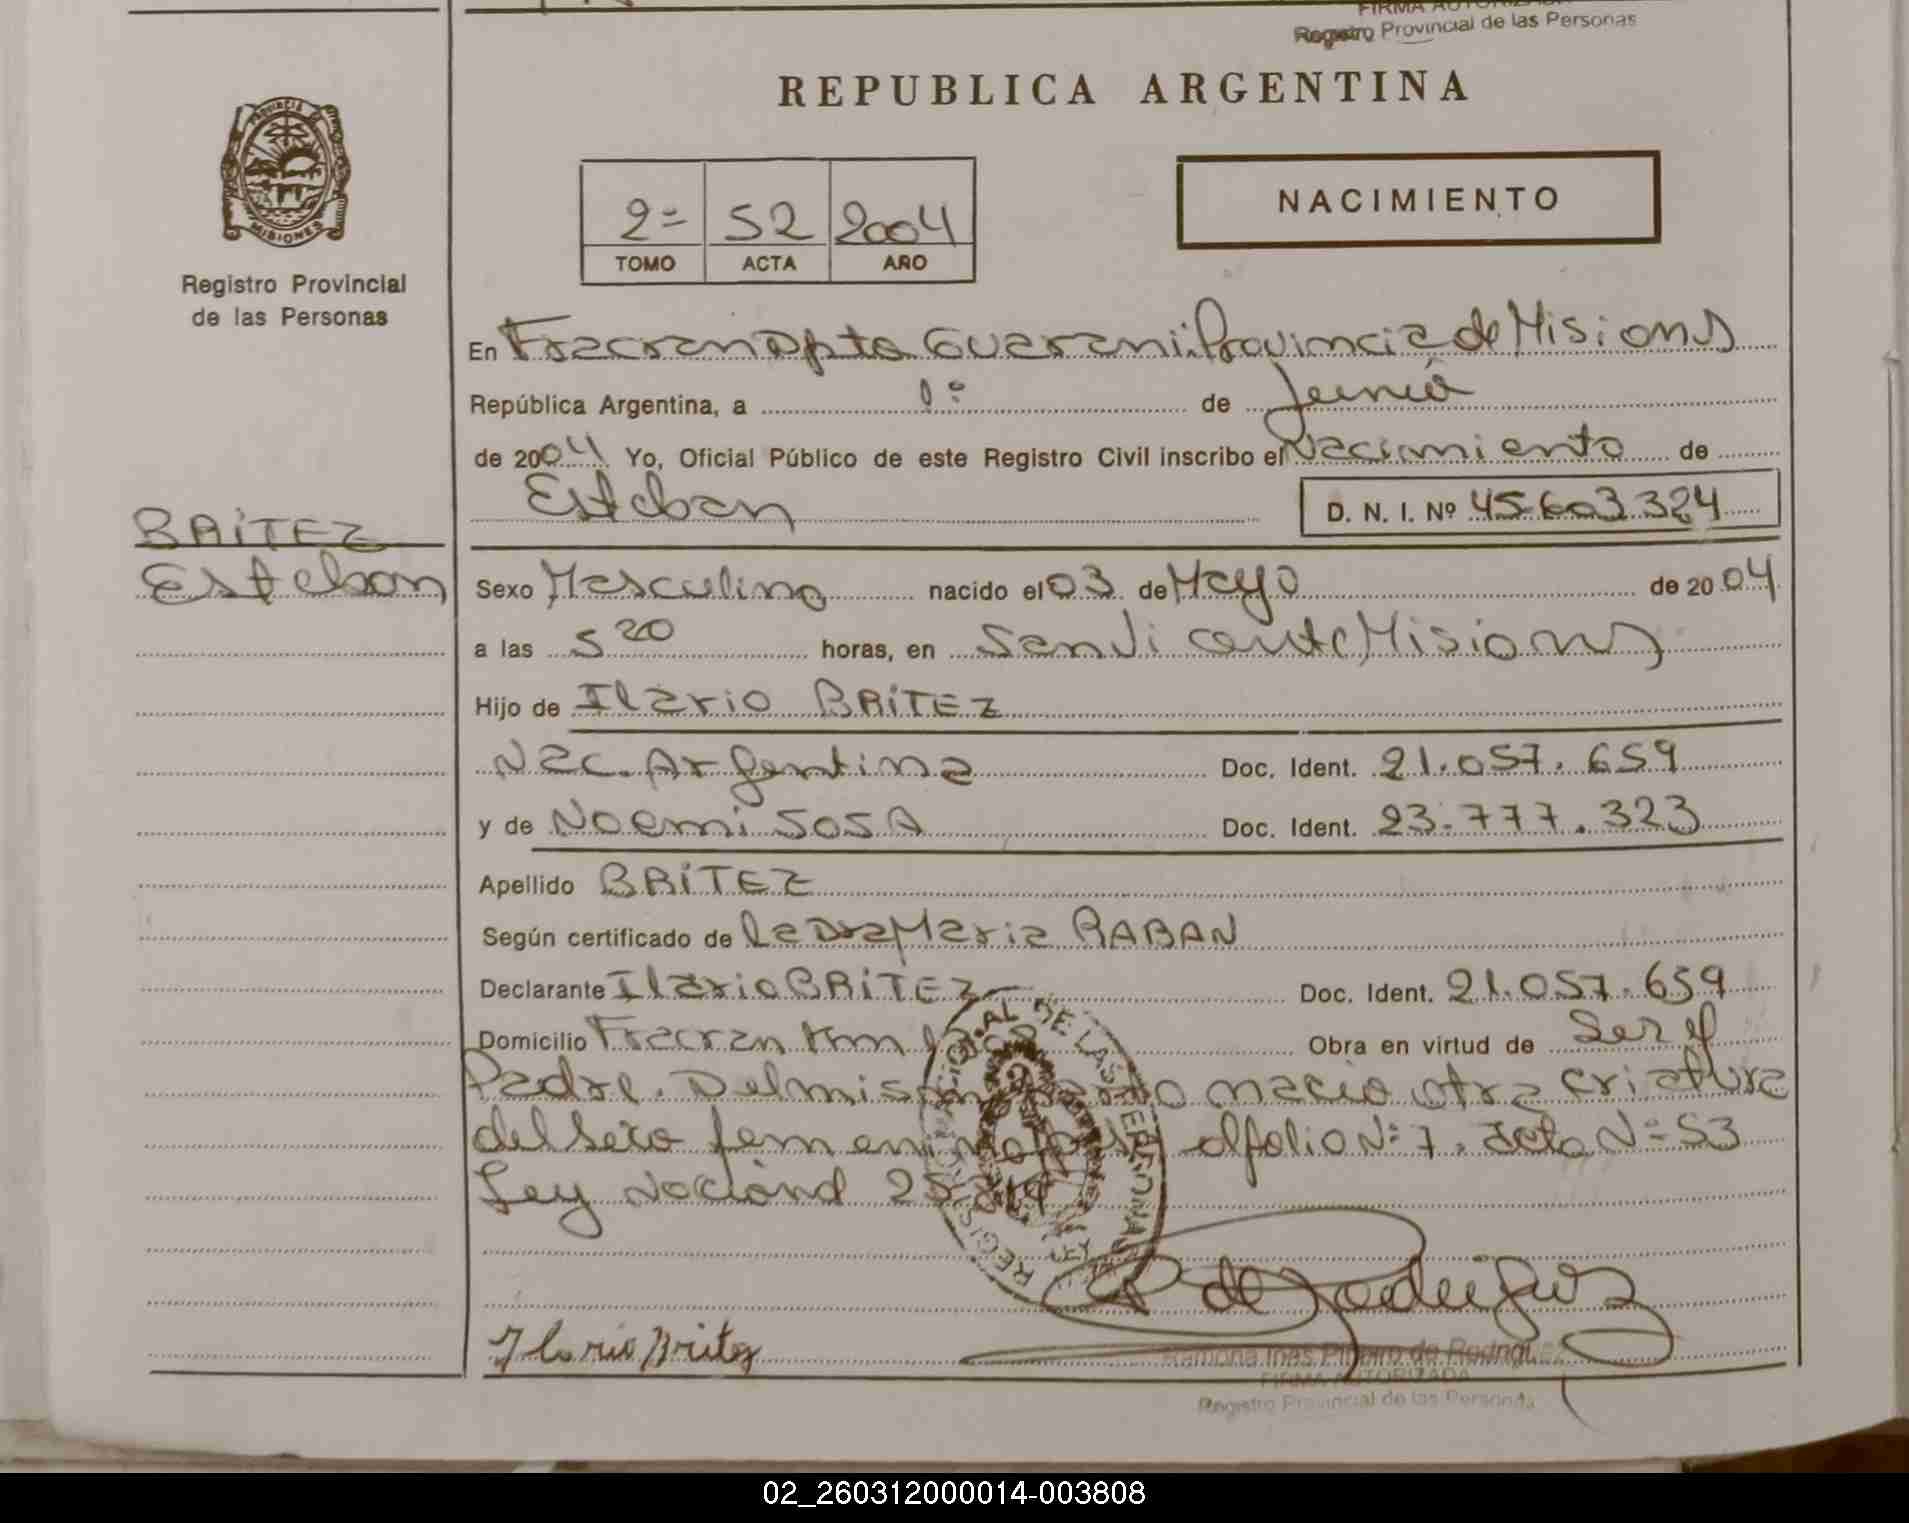 FIRMA AUTORIZADA
Registro Provincial de las Personas
REPUBLICA ARGENTINA
PROVINCIA DE
MISIONES
Registro Provincial
de las Personas
2º 52 2004
TOMO ACTA AÑO
NACIMIENTO
En Fracran Dpto Guarani. Provincia de Misiones
República Argentina, a 1º de Junio
de 2004 Yo, Oficial Público de este Registro Civil inscribo el Nacimiento de
Esteban D. N. I. Nº 45.603.324
BRiTEZ
Esteban
Sexo Masculino nacido el 03 de Mayo de 2004
a las 5 20 horas, en San Vicente Misiones
Hijo de Ilario BRiTEZ
Nac. Argentina Doc. Ident. 21.057.659
y de Noemi SOSA Doc. Ident. 23.777.323
Apellido BRiTEZ
Según certificado de la Dra Maria RABAN
Declarante Ilario BRiTEZ Doc. Ident. 21.057.659
Domicilio Fracran Km Obra en virtud de Ser el
Padre. Del mismo nacio otra criatura
del Sexo femenino al folio Nº 7. acta Nº 53
Ley Nacional
Ilario Britez
R de Rodriguez
Ramona Ines Piñeiro de Rodriguez
FIRMA AUTORIZADA
Registro Provincial de las Personas
02_260312000014-003808